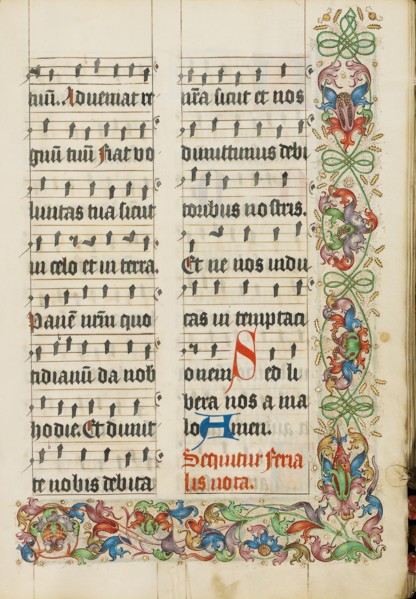 tuū. Adueniat re
gnū tuū Fiat vo
luntas tua sicut
in celo et in terra.
Panē nrm̄ quo
tidianū da nob
hodie. Et dimit
te nobis debita
nr̄a sicut et nos
dimittimus debi
toribus nostris.
Et ne nos indu
cas in temptaci
onem Sed li
bera nos a ma
lo Amen.
Sequitur Feria
lis nota.